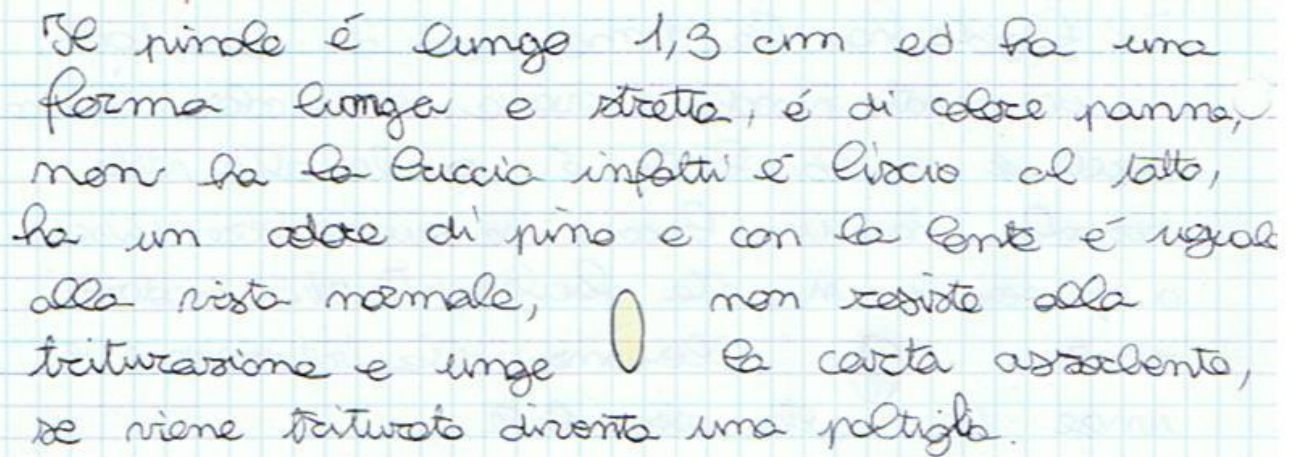 Il pinole é lungo 1,3 cm ed ha una
forma lunga e stretta, é di colore panna,
non ha la buccia infatti é liscio al tatto,
ha un odore di pino e con la lente é uguale
alla vista normale, non resiste alla
triturazione e unge la carta assorbente,
se viene triturato diventa una poltiglia.